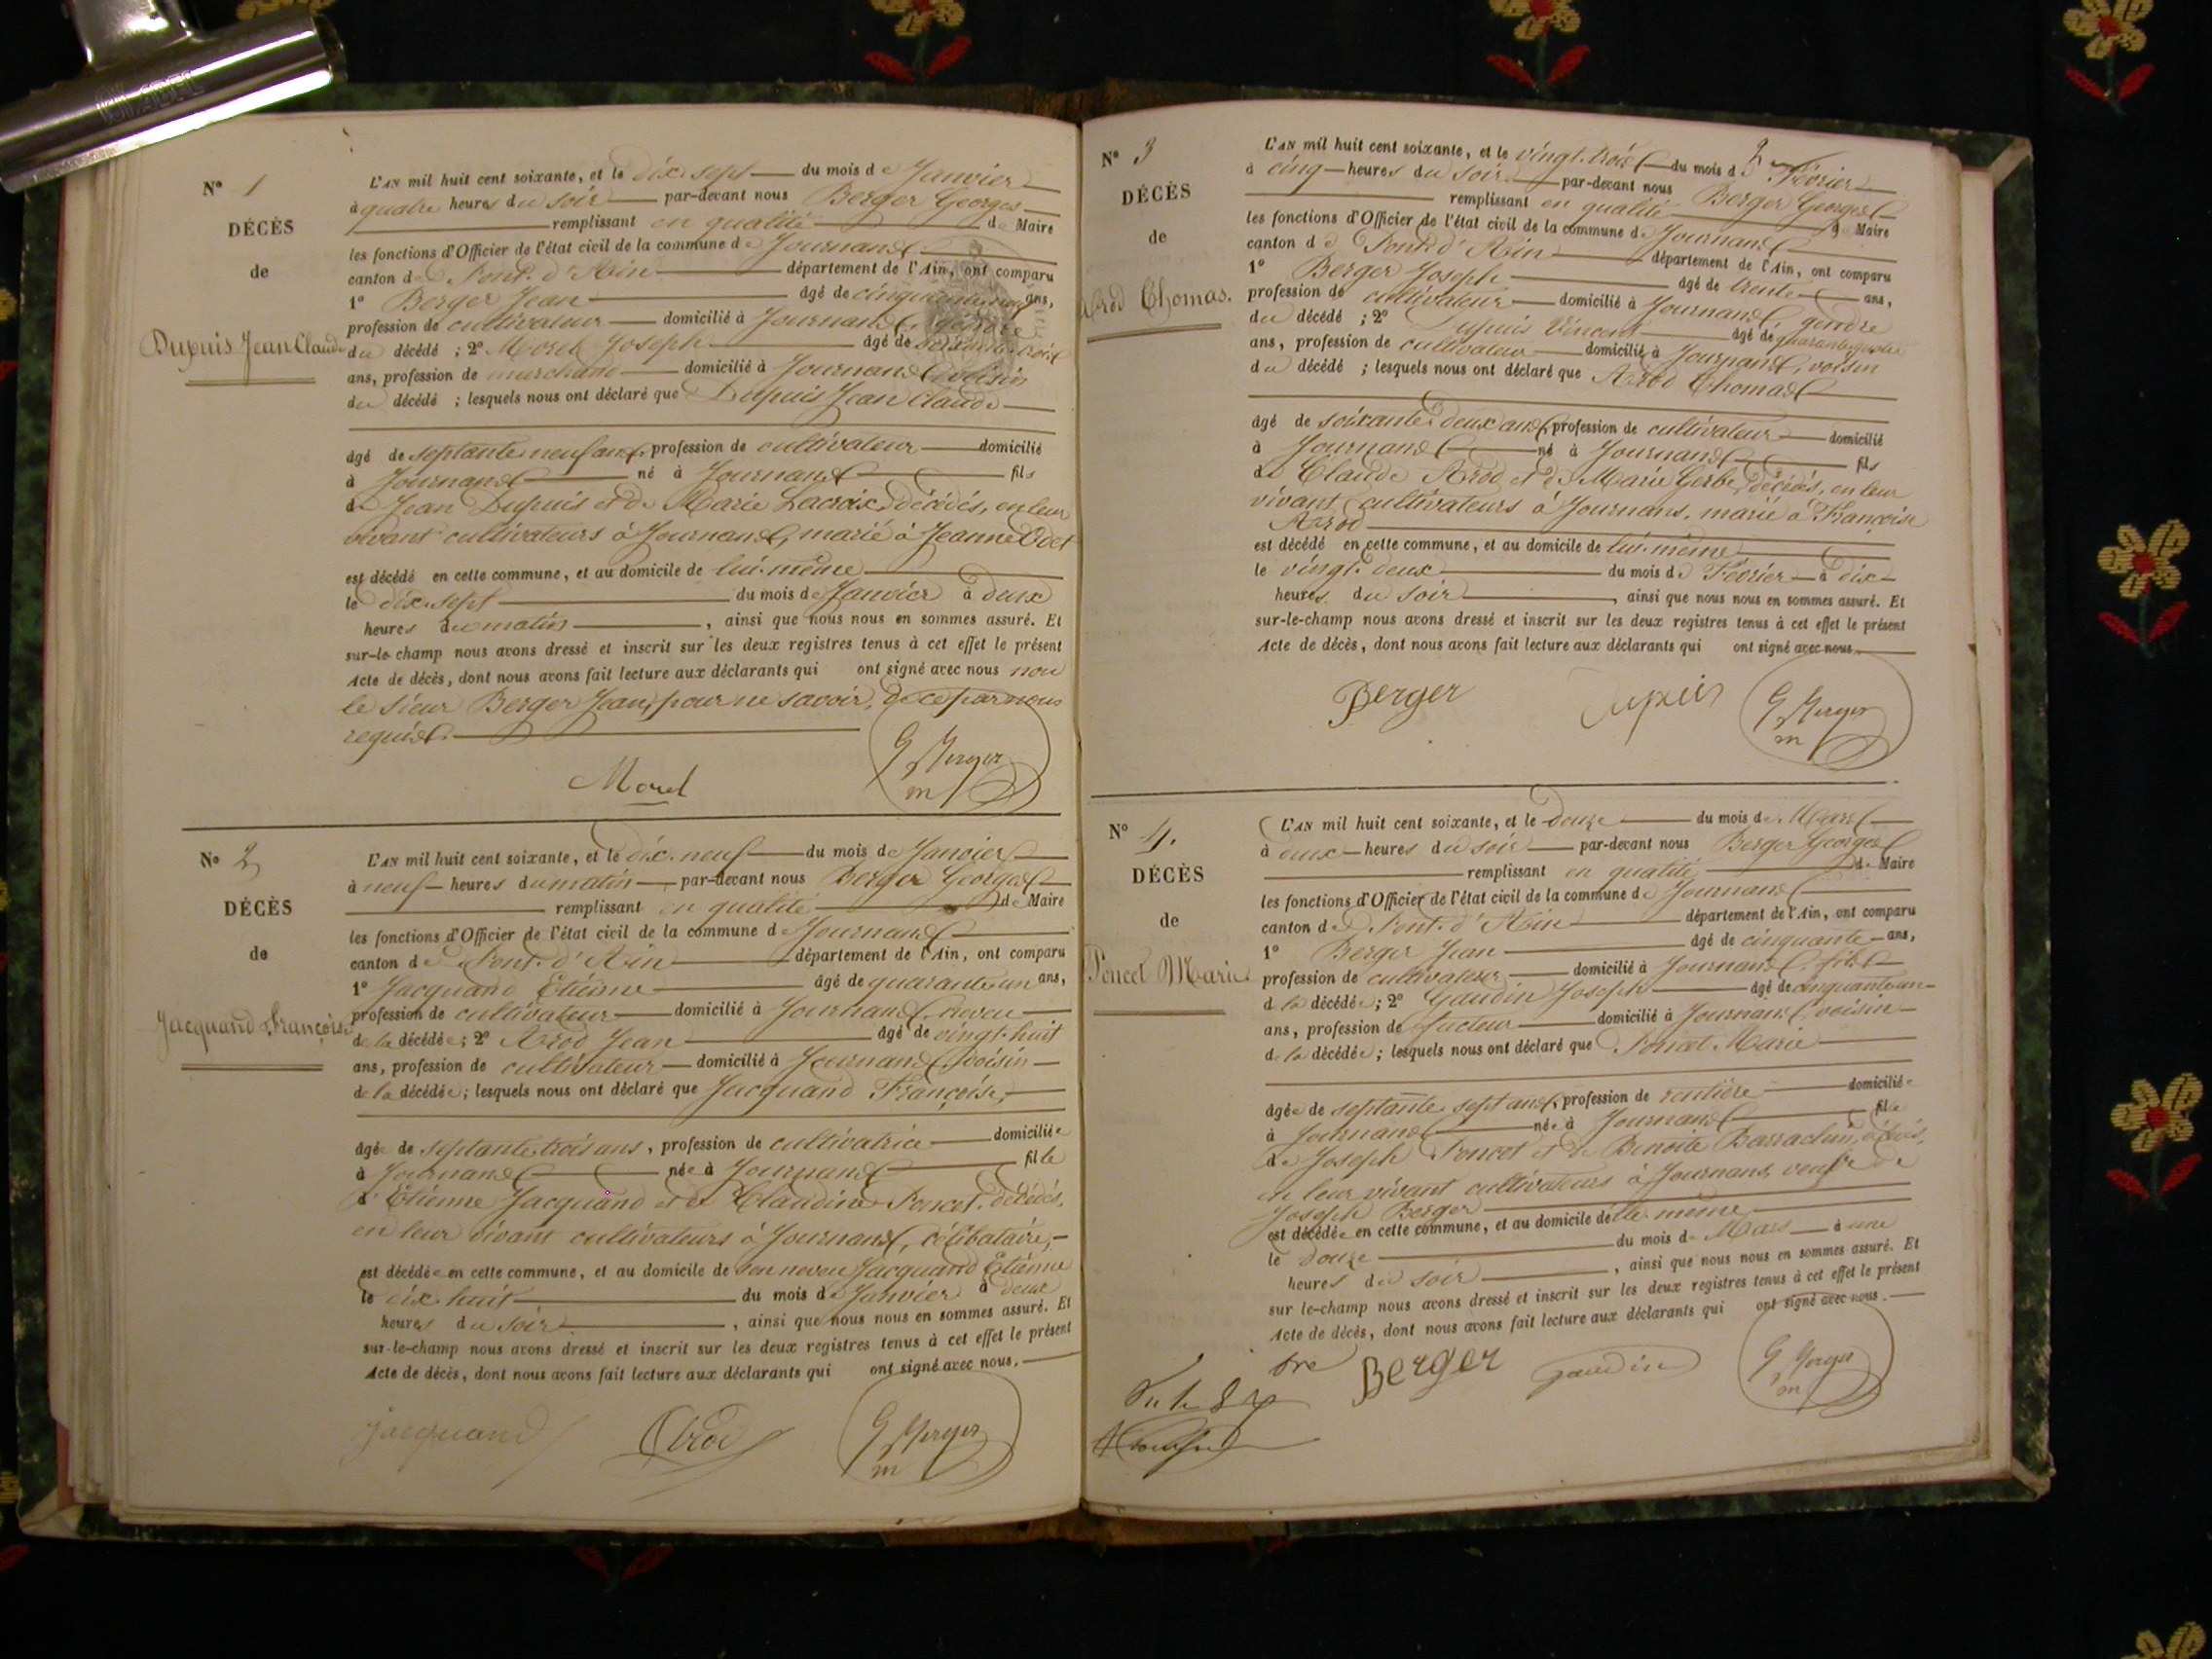 N° 1
DÉCÈS
de
Dupuis Jean Claude
L'AN mil huit cent soixante, et le dix sept du mois de Janvier
à quatre heures du soir par-devant nous Berger Georges
remplissant en qualité de Maire
les fonctions d'Officier de l'état civil de la commune de Journans
canton de Pont-d'Ain département de l'Ain, ont comparu
1° Berger Jean âgé de cinquante neuf ans,
profession de cultivateur domicilié à Journans, gendre
du décédé ; 2° Morel Joseph âgé de soixante trois
ans, profession de marchand domicilié à Journans, voisin
du décédé ; lesquels nous ont déclaré que Dupuis Jean Claude
âgé de septante neuf ans, profession de cultivateur domicilié
à Journans né à Journans fils
de Jean Dupuis et de Marie Lacroix, décédés, en leur
vivant cultivateurs à Journans, marié à Jeanne Odet
est décédé en cette commune, et au domicile de lui-même
le dix sept du mois de Janvier à deux
heures du matin, ainsi que nous nous en sommes assuré. Et
sur-le-champ nous avons dressé et inscrit sur les deux registres tenus à cet effet le présent
Acte de décès, dont nous avons fait lecture aux déclarants qui ont signé avec nous non
le sieur Berger Jean, pour ne savoir, de ce par nous
requis.
Morel
G Berger
m
N° 2
DÉCÈS
de
Jacquand Françoise
L'AN mil huit cent soixante, et le dix-neuf du mois de Janvier
à neuf heures du matin par-devant nous Berger Georges
remplissant en qualité de Maire
les fonctions d'Officier de l'état civil de la commune de Journans
canton de Pont-d'Ain département de l'Ain, ont comparu
1° Jacquand Etienne âgé de quarante un ans,
profession de cultivateur domicilié à Journans, neveu
de la décédée ; 2° Arod Jean âgé de vingt-huit
ans, profession de cultivateur domicilié à Journans, voisin
de la décédée ; lesquels nous ont déclaré que Jacquand Françoise,
âgée de septante trois ans, profession de cultivatrice domiciliée
à Journans née à Journans fille
d'Etienne Jacquand et de Claudine Poncet, décédés,
en leur vivant cultivateurs à Journans, célibataire,
est décédée en cette commune, et au domicile de son neveu Jacquand Etienne
le dix huit du mois de Janvier à deux
heures du soir, ainsi que nous nous en sommes assuré. Et
sur-le-champ nous avons dressé et inscrit sur les deux registres tenus à cet effet le présent
Acte de décès, dont nous avons fait lecture aux déclarants qui ont signé avec nous.
Jacquand
Arod
G Berger
m
N° 3
DÉCÈS
de
Arod Thomas.
L'AN mil huit cent soixante, et le vingt-trois du mois de Février
à cinq heures du soir par-devant nous Berger Georges
remplissant en qualité de Maire
les fonctions d'Officier de l'état civil de la commune de Journans
canton de Pont-d'Ain département de l'Ain, ont comparu
1° Berger Joseph âgé de trente ans,
profession de cultivateur domicilié à Journans, gendre
du décédé ; 2° Dupuis Vincent âgé de quarante quatre
ans, profession de cultivateur domicilié à Journans, voisin
du décédé ; lesquels nous ont déclaré que Arod Thomas
âgé de soixante deux ans, profession de cultivateur domicilié
à Journans né à Journans fils
de Claude Arod et de Marie Gerbe, décédés, en leur
vivant cultivateurs à Journans, marié à Françoise
Arod
est décédé en cette commune, et au domicile de lui-même
le vingt-deux du mois de Février à dix
heures du soir, ainsi que nous nous en sommes assuré. Et
sur-le-champ nous avons dressé et inscrit sur les deux registres tenus à cet effet le présent
Acte de décès, dont nous avons fait lecture aux déclarants qui ont signé avec nous.
Berger
Dupuis
G Berger
m
N° 4.
DÉCÈS
de
Poncet Marie
L'AN mil huit cent soixante, et le douze du mois de Mars
à deux heures du soir par-devant nous Berger Georges
remplissant en qualité de Maire
les fonctions d'Officier de l'état civil de la commune de Journans
canton de Pont-d'Ain département de l'Ain, ont comparu
1° Berger Jean âgé de cinquante ans,
profession de cultivateur domicilié à Journans, fils
de la décédée ; 2° Gaudin Joseph âgé de cinquante un
ans, profession de facteur domicilié à Journans, voisin
de la décédée ; lesquels nous ont déclaré que Poncet Marie
âgée de septante sept ans, profession de rentière domiciliée
à Journans née à Journans fille
de Joseph Poncet et de Benoite Barrachin, décédés,
en leur vivant cultivateurs à Journans, veuve de
Joseph Berger
est décédée en cette commune, et au domicile d'elle-même
le douze du mois de Mars à une
heures du soir, ainsi que nous nous en sommes assuré. Et
sur-le-champ nous avons dressé et inscrit sur les deux registres tenus à cet effet le présent
Acte de décès, dont nous avons fait lecture aux déclarants qui ont signé avec nous.
Berger
Gaudin
G Berger
m